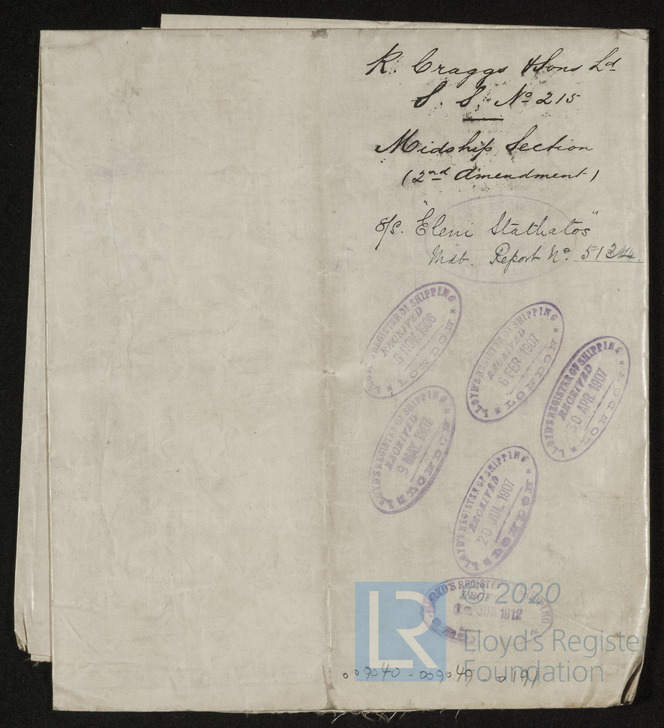 R. Craggs & Sons Ld
S. S. No 215
Midship Section
(2nd Amendment)
S/S. "Eleni Stathatos"
Mdb. Report No. 5124
LLOYD'S REGISTER OF SHIPPING
RECEIVED
5 NOV. 1906
LONDON
LLOYD'S REGISTER OF SHIPPING
RECEIVED
6 FEB. 1907
LONDON
LLOYD'S REGISTER OF SHIPPING
RECEIVED
30 APR. 1907
LONDON
LLOYD'S REGISTER OF SHIPPING
RECEIVED
9 MAY. 1907
LONDON
LLOYD'S REGISTER OF SHIPPING
RECEIVED
JUL. 1907
LONDON
LLOYD'S REGISTER SHIPPING
1912
© 2020
LR
Lloyd's Register
Foundation
009040 - 009049 - 0191